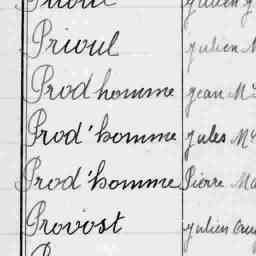 Prioul julien M
Prodhomme jean Me
Prod'homme jules Me
Prod'homme Pierre Ma
Provost julien